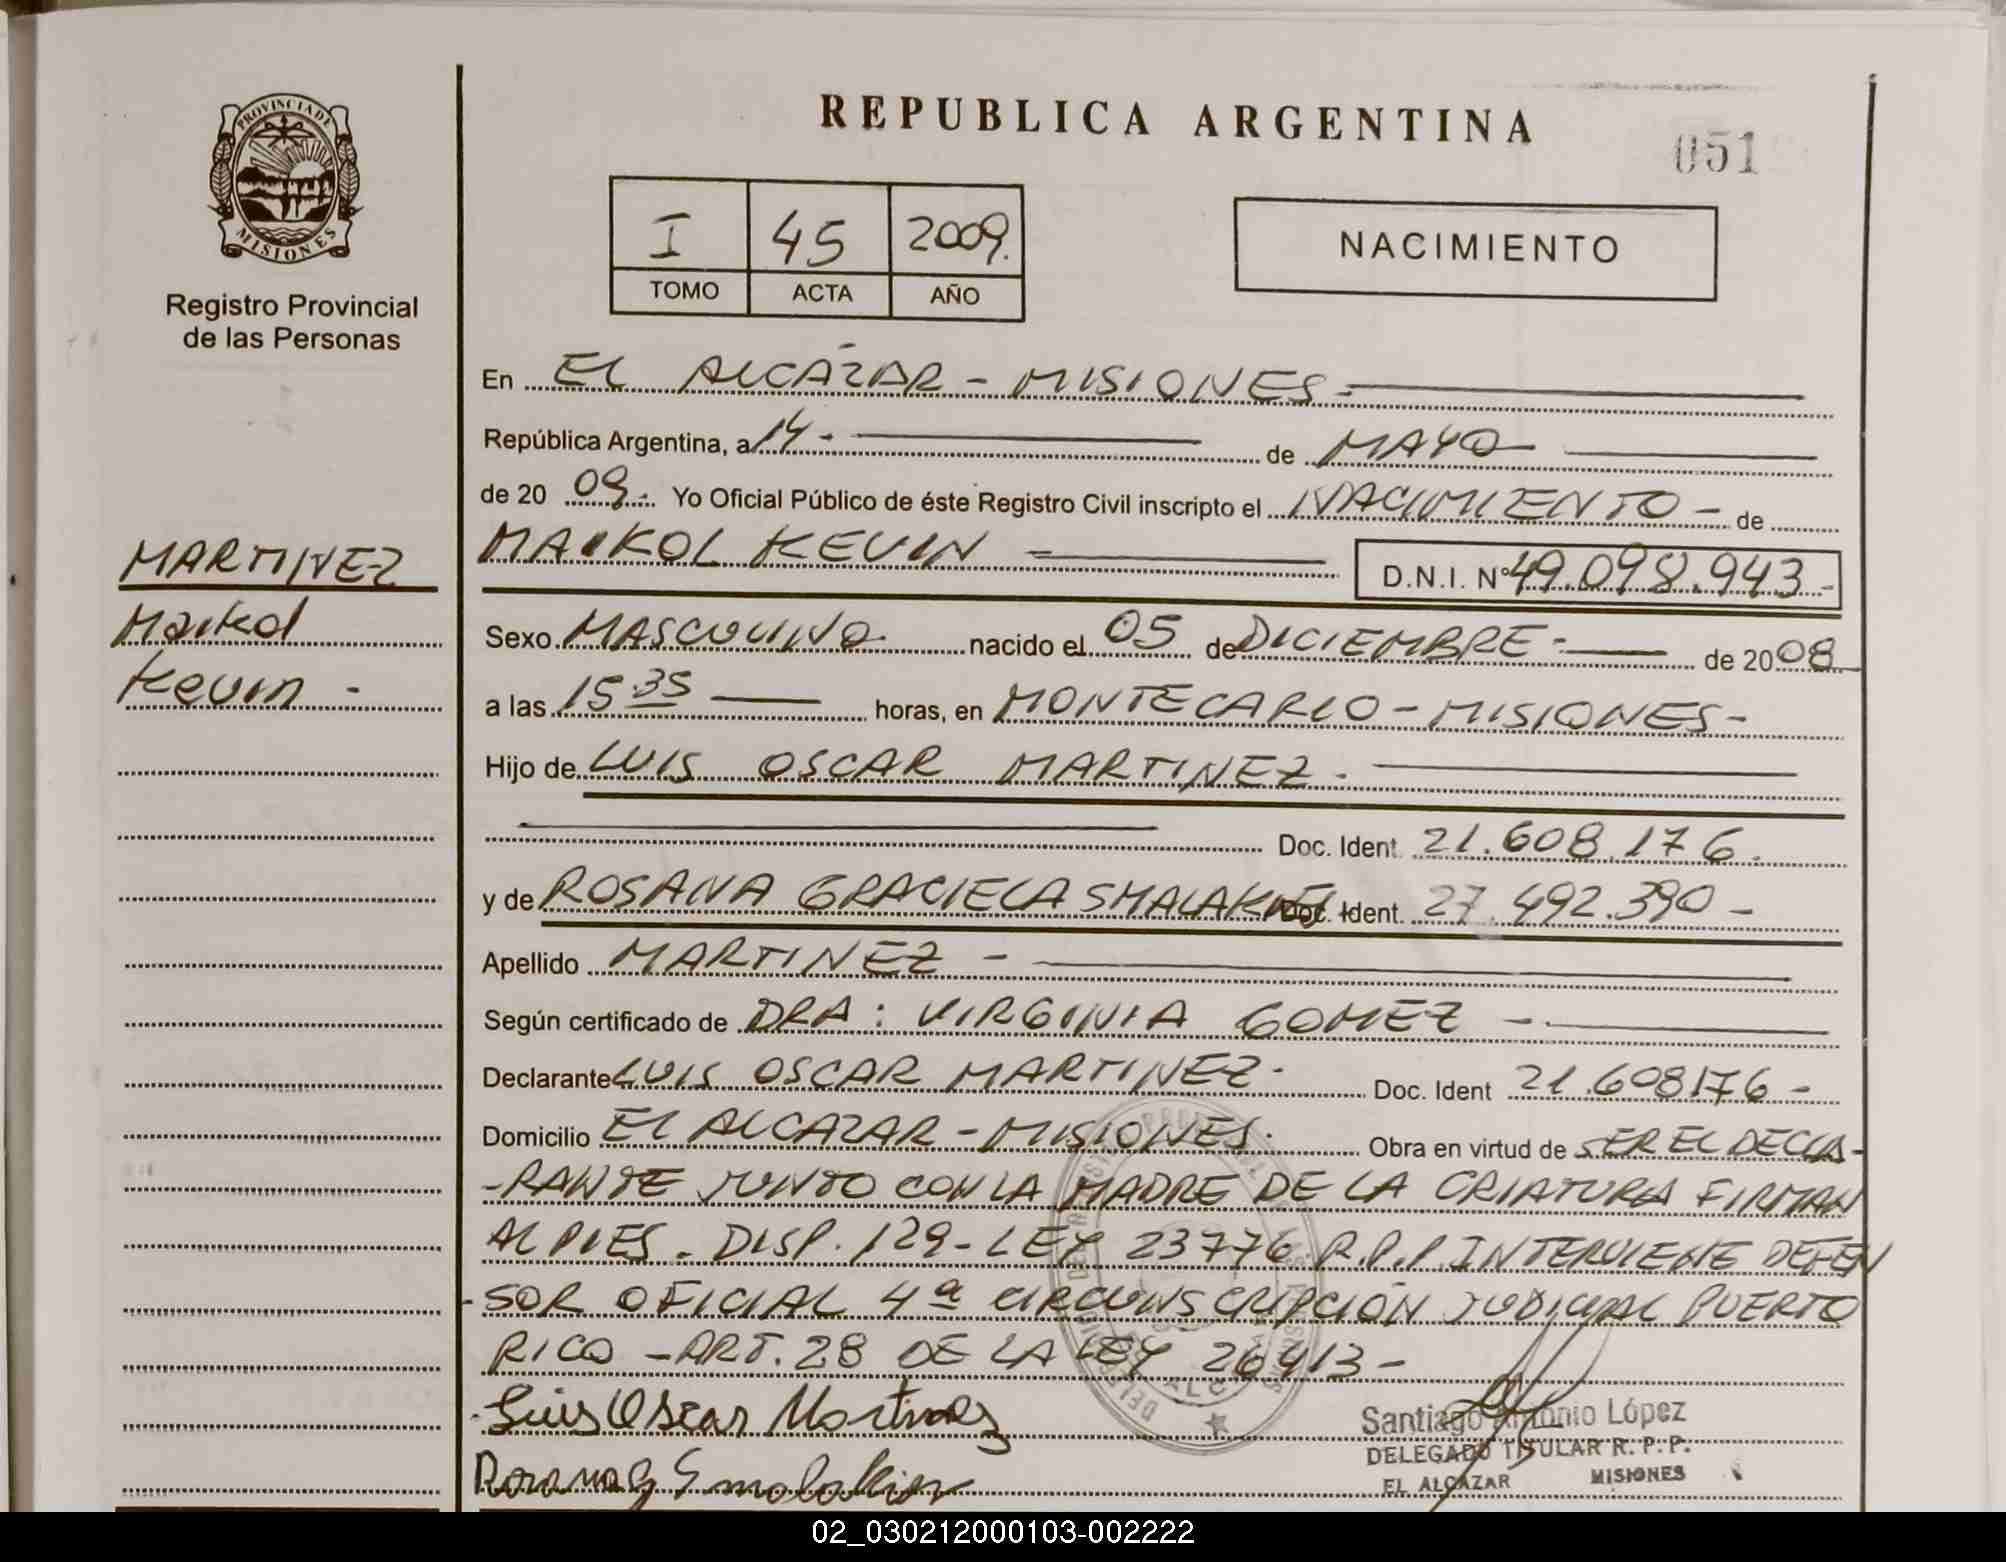 REPUBLICA ARGENTINA
051
PROVINCIA DE
MISIONES
Registro Provincial
de las Personas
I 45 2009.
TOMO ACTA AÑO
NACIMIENTO
En EL ALCÁZAR - MISIONES -
República Argentina, a 14 - de MAYO
de 20 09.- Yo Oficial Público de éste Registro Civil inscripto el NACIMIENTO - de
MAIKOL KEVIN - D.N.I. Nº 49.098.943 -
MARTINEZ
Maikol
Kevin -
Sexo MASCULINO nacido el 05 de DICIEMBRE - de 2008
a las 15.35 horas, en MONTECARLO - MISIONES -
Hijo de LUIS OSCAR MARTINEZ.
Doc. Ident. 21.608.176.
y de ROSANA GRACIELA Doc. Ident. 27.492.390 -
Apellido MARTINEZ -
Según certificado de DRA: VIRGINIA GOMEZ -
Declarante LUIS OSCAR MARTINEZ - Doc. Ident 21.608176 -
Domicilio EL ALCAZAR - MISIONES. Obra en virtud de SER EL DECLA-
-RANTE JUNTO CON LA MADRE DE LA CRIATURA FIRMAN
AL PIES. DISP. 129 - LEY 23776. R.P.P. INTERVIENE DEFEN
-SOR OFICIAL 4ª CIRCUNSCRIPCIÓN JUDICIAL PUERTO
RICO - ART. 28 DE LA LEY 26413 -
Luis Oscar Martinez
Rosana G
Santiago Antonio López
DELEGADO TITULAR R. P. P.
EL ALCAZAR MISIONES
02_030212000103-002222